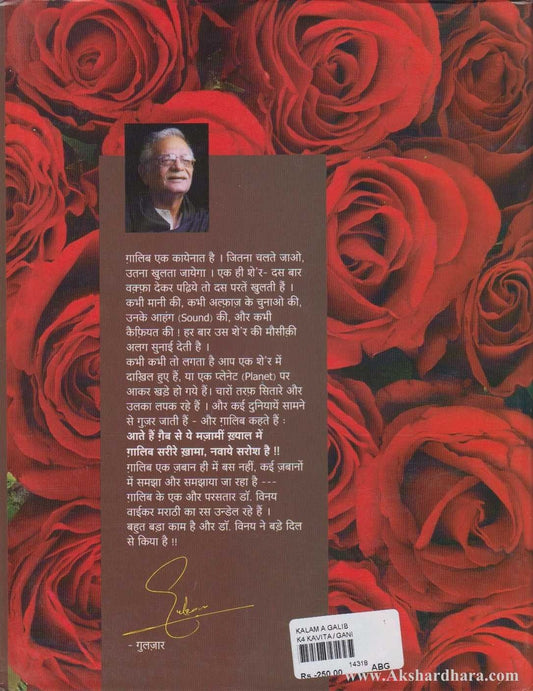 ग़ालिब एक कायेनात है । जितना चलते जाओ,
उतना खुलता जायेगा । एक ही शे'र- दस बार
वक़्फ़ा देकर पढ़िये तो दस परतें खुलती हैं ।
कभी मानी की, कभी अल्फ़ाज़ के चुनाओ की,
उनके आहंग (Sound) की, और कभी
कैफ़ियत की ! हर बार उस शे'र की मौसीक़ी
अलग सुनाई देती है ।
कभी कभी तो लगता है आप एक शे'र में
दाख़िल हुए हैं, या एक प्लेनेट (Planet) पर
आकर खड़े हो गये हैं। चारों तरफ़ सितारे और
उलका लपक रहे हैं । और कई दुनियायें सामने
से गुज़र जाती हैं - और ग़ालिब कहते हैं :
आते हैं ग़ैब से ये मज़ामीं ख़्याल में
ग़ालिब सरीरे ख़ामा, नवाये सरोश है !!
ग़ालिब एक ज़बान ही में बस नहीं, कई ज़बानों
में समझा और समझाया जा रहा है ---
ग़ालिब के एक और परसतार डॉ. विनय
वाईकर मराठी का रस उन्डेल रहे हैं ।
बहुत बड़ा काम है और डॉ. विनय ने बड़े दिल
से किया है !!
- गुलज़ार
KALAM A GALIB
K4 KAVITA / GANI
Rs.-250.00 14319 ABG
www.Akshardhara.com